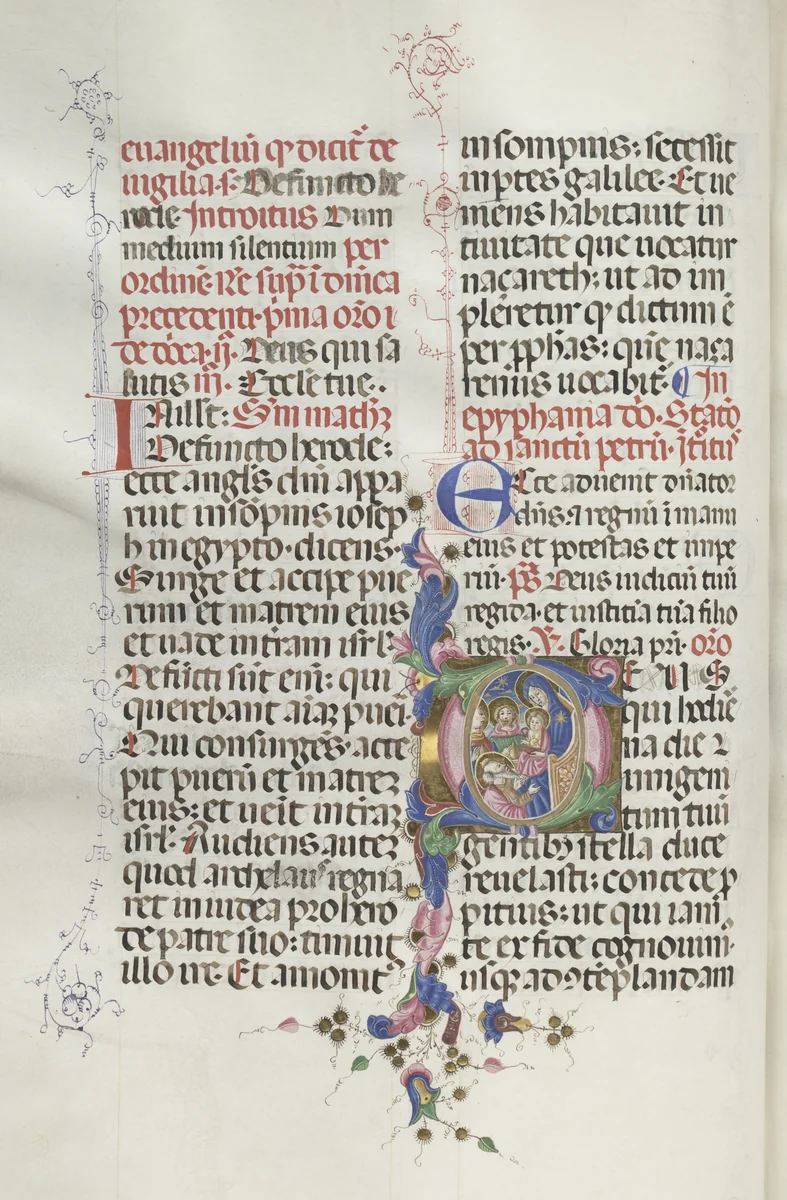 euangeliū qɔ dicit̄ de
uigilia·s· Defuncto he
rode· Introitus Dum
medium silentium per
ordinē· Re sup̄ ī dn̄ica
precedenti· p̄ma or̄o ī
de· ij· Deus qui sa
lutis iij· Eccl̄e tue··
In illt̄: Sm̄ math̄ꝫ
Defuncto herode:
ecce angl̄s dn̄i appa
ruit in sōpnis iosep
h in egypto· dicens·
Surge et accipe pue
rum et matrem eius
et uade in tr̄am isrl̄·
Defūcti sūt enī: qui
querebant aīaꝫ pueri·
Qui consurgēs· acce
pit puerū et matreꝫ
eius: et uēit in tr̄aꝫ
isrl̄· Audiens auteꝫ
quod archelaus regna
ret in iudea pro hero
de patre suo: timuit
illo ire· Et amonit᾿
in sompnis: secessit
in ptes galilee· Et ue
niens habitauit in
ciuitate que uocatur
naçareth: ut ad im
plēretur qɔ dictum ē
per pp̄has: qūe naça
renus uocabit᾿· In
epyphania dō· Statō
ad sanctū petrū· Ītit᾿
Ecce aduenit dn̄ator
dn̄s: ⁊ regnū ī manu
eius et potestas et impe
riū· p̄s Deus iudiciū tuū
regi da· et iustitiā tuā filio
regis· ℣· Gloria pri· or̄o
DEUS
qui hodiē
na die
unigeni
tum tuū
gentibꝫ stella duce
reuelasti: concede ꝓ
pitius: ut qui iam
te ex fide cognouim᾿
usqꝫ ad ꝯtēplandam